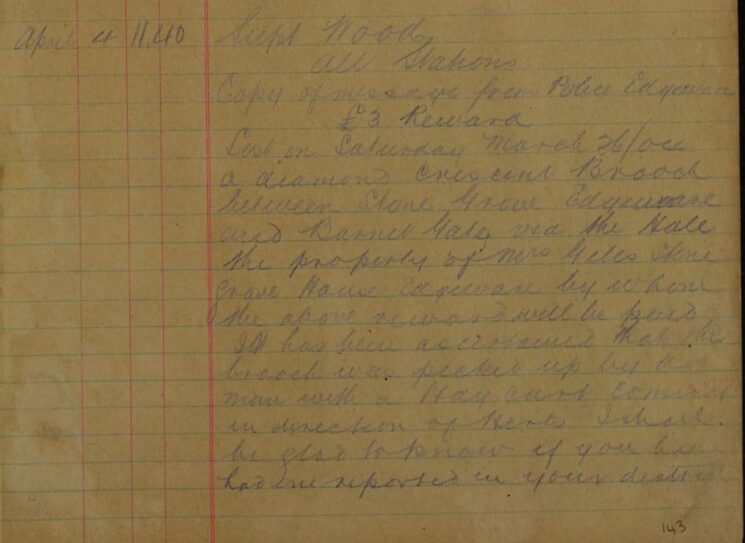 April 4 11.40 Supt Wood
All Stations
Copy of message from Police Edgeware
£3 Reward
Lost on Saturday March 26/
a diamond Crescent Brooch
between Stone Grove Edgeware
and Barnet Gate via the Hale
the property of Mrs Giles Stone
Grove House Edgeware by whom
the above reward will be paid
It has been ascertained that the
brooch was picked up by a
man with a Hay cart coming
in direction of Herts I shall
be glad to know if you have
had one reported in your
143